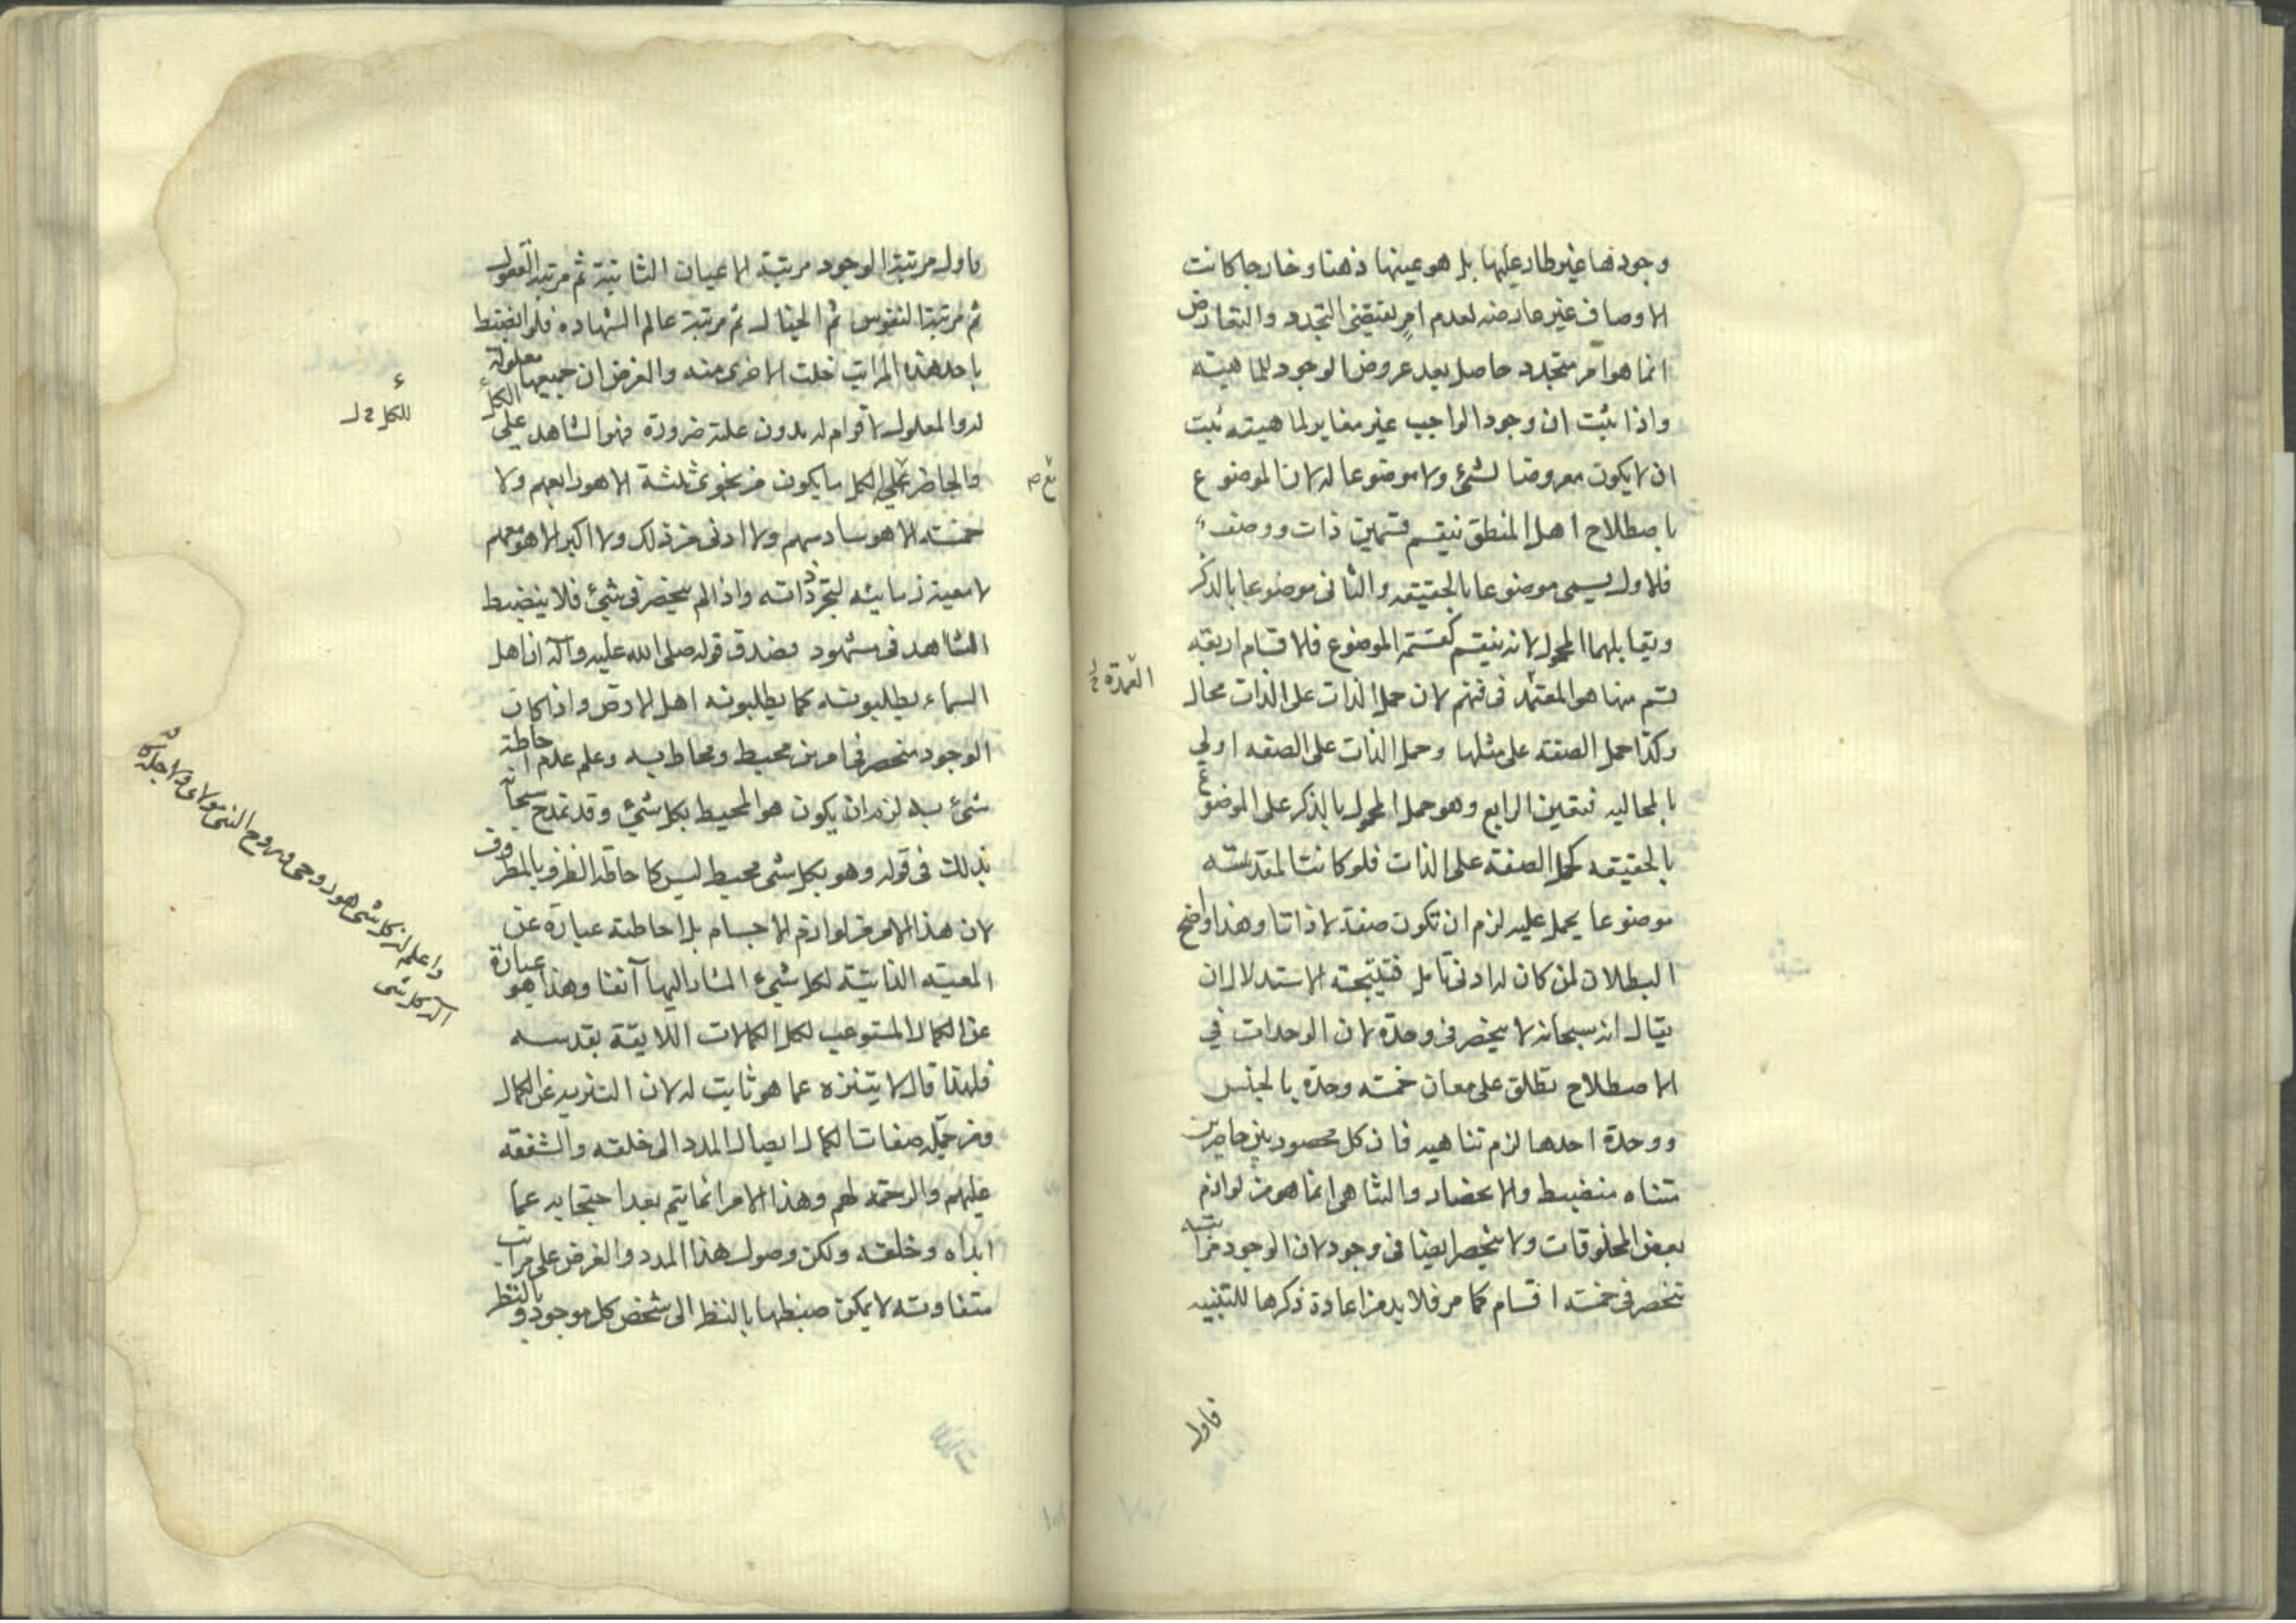 وجودها غير طار عليها بل هو عينها ذهنا وخارجا كانت
الاوصاف غير عارضه لعدم امر يقتضى التجدد والتعارض
انما هو امر متجدد حاصل بعد عروض الوجود للماهيته
واذا ثبت ان وجود الواجب غير مغاير لماهيته ثبت
ان لا يكون معروضا لشئ ولا موضوعا له لان الموضوع
باصطلاح اهل المنطق ينقسم قسمين ذات ووصف
فالاول يسمى موضوعا بالحقيقه والثانى موضوعا بالذكر
ويقابلهما المحمول لانه ينقسم كقسمة الموضوع فالاقسام اربعه
قسم منها هو المعتمد فى فنهم لان حمل الذات على الذات محال
العمدة
وكذا حمل الصفه على مثلها وحمل الذات على الصفه اولى
بالمحاليه فتعين الرابع وهو حمل المحمول بالذكر على الموضوع
بالحقيقه كحمل الصفة على الذات فلو كانت المقدسته
موضوعا يحمل عليه لزم ان تكون صفة لا ذاتا وهذا واضح
البطلان لمن كان له ادنى تامل فنتيجته الاستدلال ان
يقال انه سبحانه لا ينحصر فى وحدة لان الوحدات في
الاصطلاح تطلق على معان خمسه وحدة بالجنس
ووحدة احدها لزم تناهيه فان كل محصور بين حاصرين
متناه منضبط والانحصار والتناهى انما هو من لوازم
بعض المخلوقات ولا ينحصر ايضا فى وجود لان الوجود مراتبه
تنحصر فى خمسه اقسام كما مر فلا بد من اعادة ذكرها للتنبيه
فاول
فاول مرتبة الوجود مرتبة الاعيان الثابتة ثم مرتبة العقول
ثم مرتبة النفوس ثم الخيال ثم مرتبة عالم الشهاده فلو انضبط
باحد هذه المراتب لخلت الاخرى منه والفرض ان جميعها معلولة
له والمعلول لا قوام له بدون علته ضرورة فهو الشاهد على الكل
للكل
والحاضر على الكل ما يكون من نجوى ثلثة الا هو رابعهم ولا
خمسه الا هو سادسهم ولا ادنى من ذلك ولا اكبر الا هو معهم
لا معية زمانيه لتجرد ذاته واذا لم ينحصر فى شئ فلا ينضبط
الشاهد فى مشهود فصدق قوله صلى الله عليه وآله ان اهل
السماء يطلبونه كما يطلبونه اهل الارض واذا كان
الوجود منحصر فى امرين محيط ومحاط به وعلم عدم احاطة
شئ به لزم ان يكون هو المحيط بكل شئ وقد تمدح سبحانه
بذلك فى قوله وهو بكل شئ محيط ليس كاحاطة الظرف بالمظروف
لان هذا الامر من لوازم الاجسام بل احاطته عبارة عن
المعيته الذاتيته لكل شئ المشار اليها آنفا وهذا هو عبارة
عن الكمال المستوعب لكل الكمالات اللايقة بقدسه
فلهذا قال لا يتنزه عما هو ثابت له لان التنزيه عن الكمال
ومن جملة صفات الكمال ايصال المدد الى خلقه والشفقه
عليهم والرحمة لهم وهذا الامر انما يتم بعد احتجابه عما
ابداه وخلقه ولكن وصول هذا المدد والفرض على مراتب
متفاوته لا يمكن ضبطها بالنظر الى شخص كل موجود وبالنظر
واعلم ان كل شئ هو روحى وروح النبى مولاى ولاجله
آله كل شئ